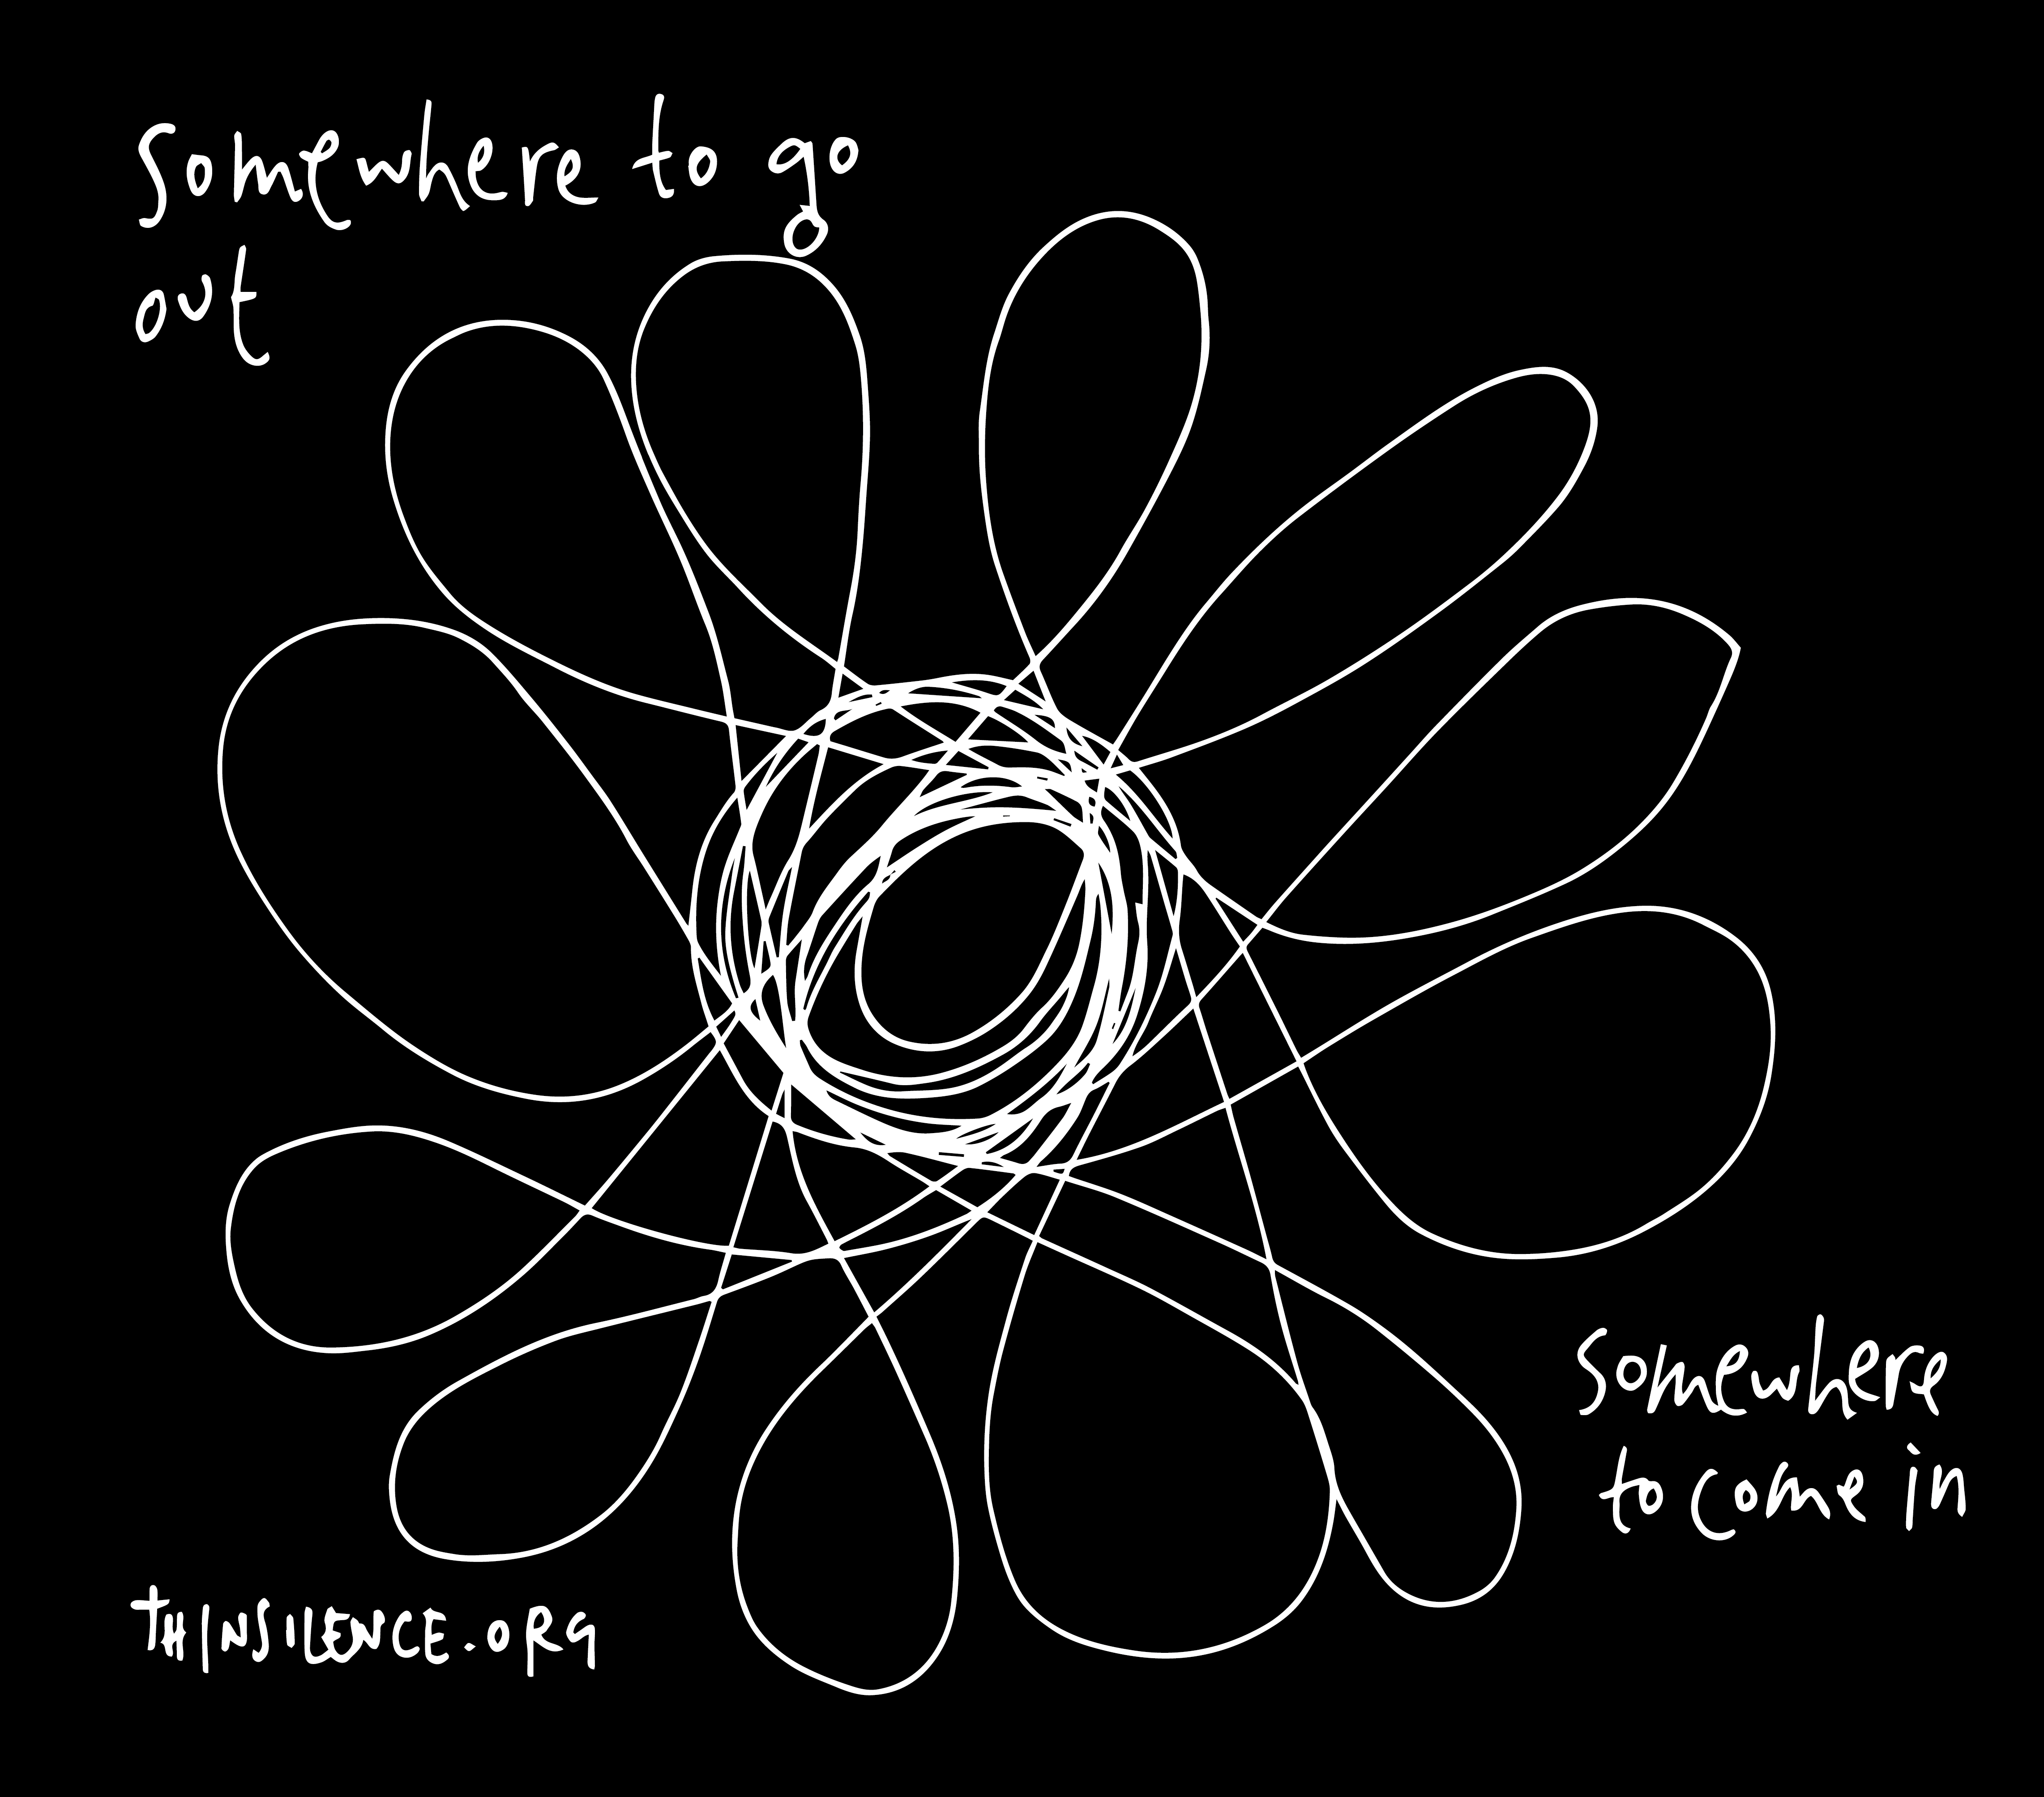 Somewhere to go
out
Somewhere
to come in
THINSILENCE.org